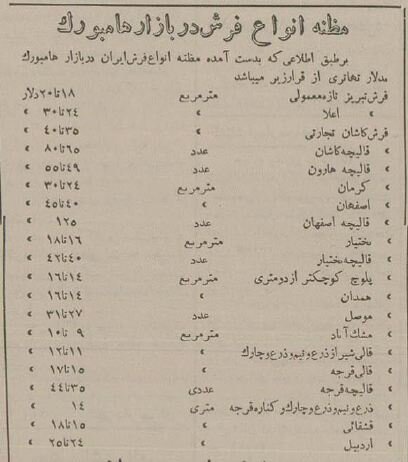 مظنه انواع فرش در بازار هامبورك
برطبق اطلاعی که بدست آمده مظنه انواع فرش ایران در بازار هامبورك
بدلار تهاتری از قرار زیر میباشد
فرش تبریز تازه معمولی مترمربع ۱۸ تا ۲۰ دلار
» اعلا » ۲٤ تا ۳۰ »
فرش کاشان تجارتی » ۳٥ تا ٤۰ »
» قالیچه کاشان عدد ٦٥ تا ۸۰ »
» قالیچه هارون عدد ٤۹ تا ٥٥ »
» کرمان مترمربع ۲٤ تا ۳۰ »
» اصفهان » ٤۰ تا ٤٥ »
» قالیچه اصفهان عدد ۱۲٥ »
» بختیار مترمربع ۱٦ تا ۱۸ »
» قالیچه بختیار عدد ٤۰ تا ٤۲ »
» بلوچ کوچکتر از دومتری مترمربع ۱٤ تا ۱٦ »
» همدان » ۱٤ تا ۱٦ »
» موصل عدد ۲۷ تا ۳۱ »
» مشك آباد مترمربع ۹ تا ۱۰ »
» قالی شیراز ذرع و نیم و ذرع و چارك » ۱۱ تا ۱۲ »
» قالی قرجه » ۱٥ تا ۱۷ »
» قالیچه قرجه عددی ۳٥ تا ٤٤ »
» ذرع و نیم و ذرع و چارك و کناره قرجه متری ۱٤ »
» قشقائی » ۱٥ تا ۱۸ »
» اردبیل » ۲٤ تا ۲٥ »